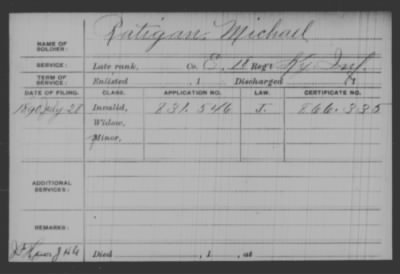 Ratigan, Michael
NAME OF SOLDIER:
SERVICE: Late rank, Co. E, Reg't Ky Inf.
TERM OF SERVICE: Enlisted , 1 Discharged , 1
DATE OF FILING. CLASS. APPLICATION NO. LAW. CERTIFICATE NO.
1890 July 28 Invalid, 831.546 J. 866.335
Widow,
Minor,
ADDITIONAL SERVICES:
REMARKS:
Died , 1 , at